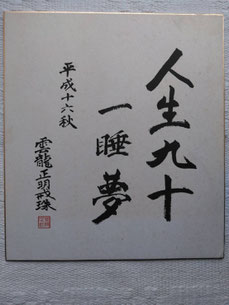 人生九十
一睡夢
平成十六秋
雲龍正明戒珠